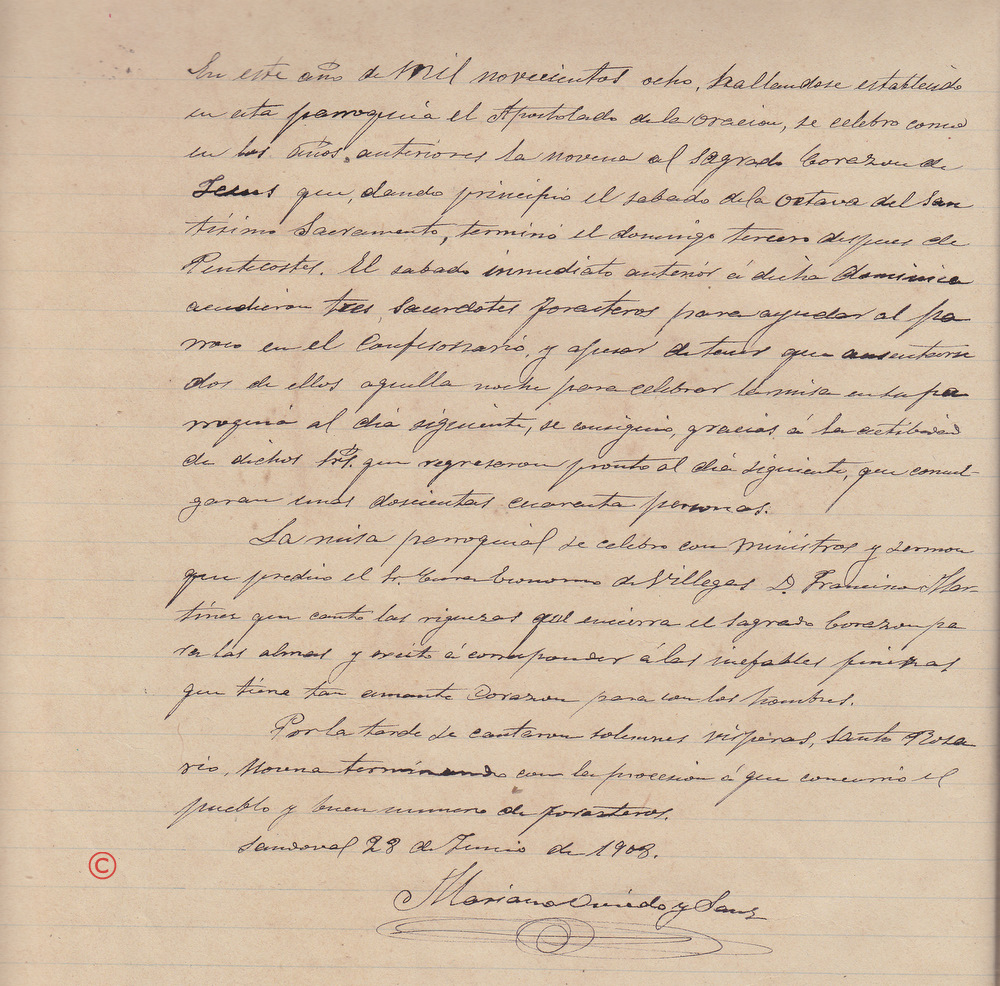 En este año de Mil novecientos ocho, hallandose establecido
en esta parroquia el Apostolado de la Oracion, se celebro como
en los años anteriores la novena al Sagrado Corazon de
Jesus que, dando principio el sabado de la Octava del San
tísimo Sacramento, terminó el domingo tercero despues de
Pentecostes. El sabado inmediato anterior á dicha dominica
acudieron tres Sacerdotes forasteros para ayudar al pa
rroco en el Confesonario, y apesar de tener que ausentarse
dos de ellos aquella noche para celebrar la misa en su pa
rroquia al dia siguiente, se consiguio, gracias á la actibidad
de dichos Srs. que regresaron pronto al dia siguiente, que comul-
garan unas doscientas cuarenta personas.
La misa parroquial se celebro con Ministros y sermon
que predico el Sr. Cura Economo de Villegas D. Francisco Mar-
tinez que canto las riquezas que encierra el Sagrado Corazon pa
ra las almas y excito á corresponder á las inefables finezas
que tiene tan amante Corazon para con los hombres.
Por la tarde se cantaron solemnes visperas, Santo Rosa
rio, Novena terminando con la procesion á que concurrio el
pueblo y buen numero de forasteros.
Sandoval 28 de Junio de 1908.
Mariano Oviedo y Sanz
©